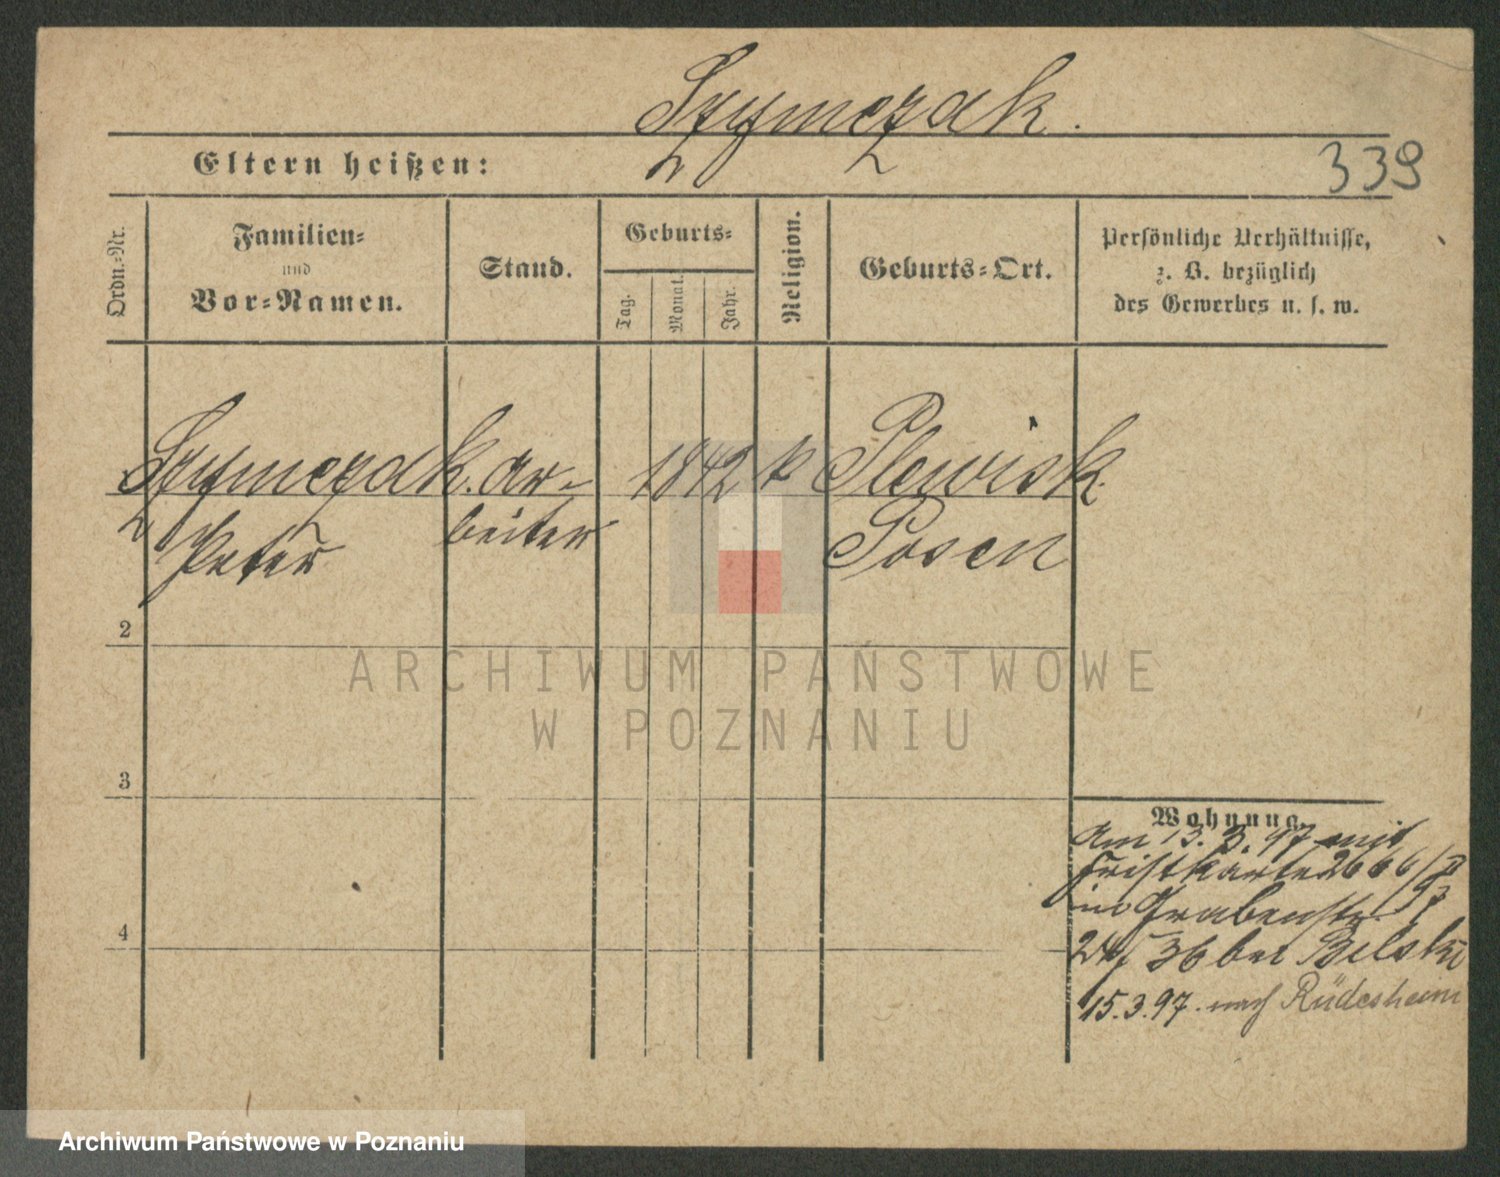 Szymczak.
Eltern heißen:
339
Ordn.-Nr.
Familien-
und
Vor-Namen.
Stand.
Geburts-
Tag.
Monat.
Jahr.
Religion.
Geburts-Ort.
Persönliche Verhältnisse,
z. B. bezüglich
des Gewerbes u. s. w.
Szymczak. Ar- 1842 k Plewisk.
Peter beiter Posen
2
ARCHIWUM PAŃSTWOWE
W POZNANIU
3
Wohnung.
am 13. 3. 97 mit
Fristkarte 2666/II 97
in Grabenstr.
24/36 bei Bilski
4
15.3.97. nach Rüdesheim
Archiwum Państwowe w Poznaniu